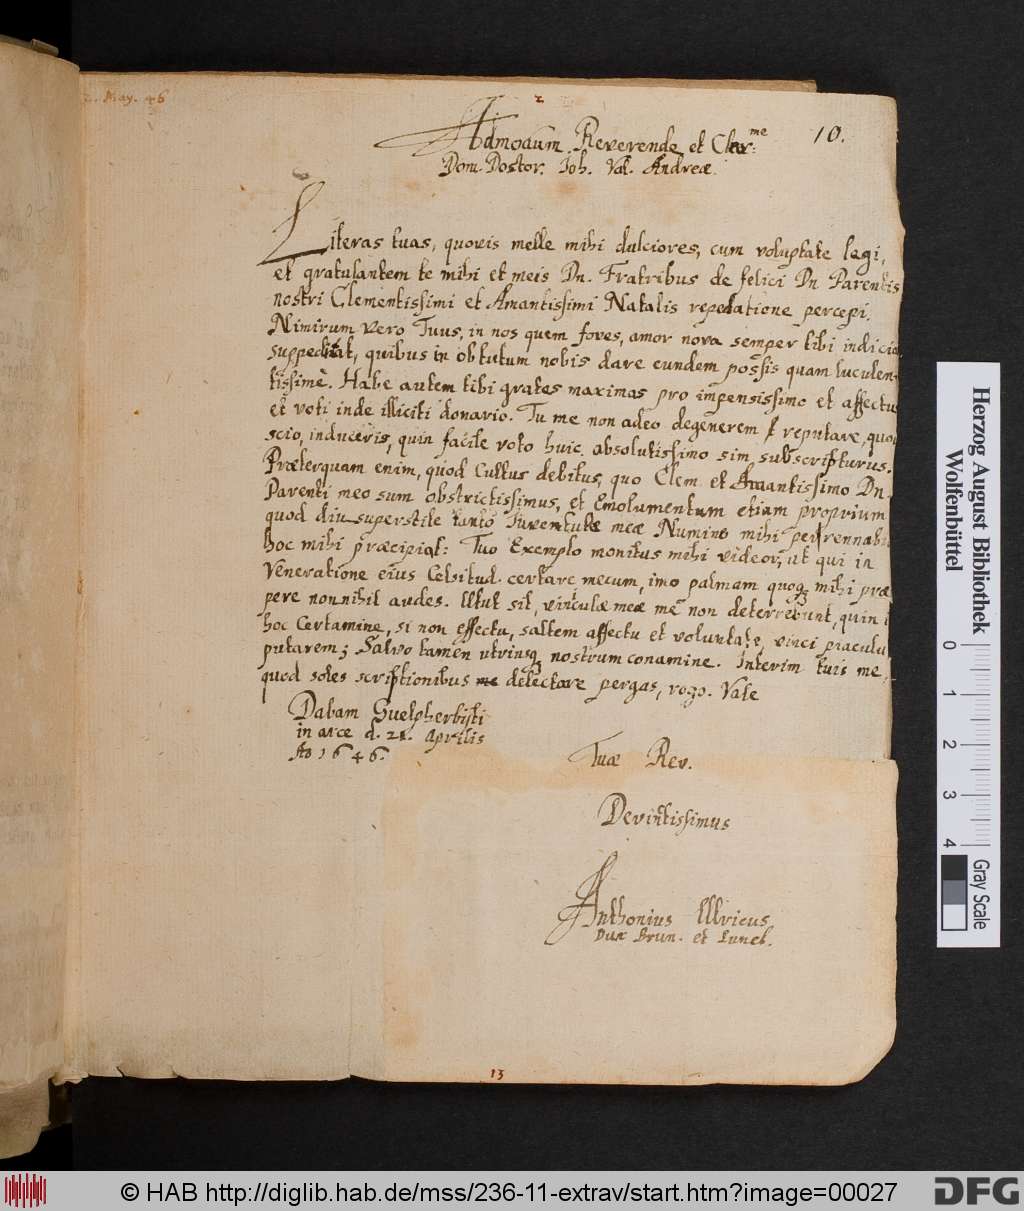 2. May. 46
2
10.
Admodum Reverende et Clar:me
Dom. Doctor. Joh. Val. Andreæ.
Literas tuas, quovis melle mihi dulciores, cum voluptate legi,
et gratulantem te mihi et meis Dn. Fratribus de felici Dn Parentis
nostri Clementissimi et Amantissimi Natalis repetatione percepi.
Nimirum vero Tuus, in nos quem foves, amor nova semper tibi indicia
suppeditat, quibus in obtutum nobis dare eundem possis quam luculen-
tissimè. Habe autem tibi grates maximas pro impensissimo et affectus
et voti inde illiciti donario. Tu me non adeo degenerem reputare, quod
scio, induceris, quin facile voto huic absolutissimo sim subscripturus.
Præterquam enim, quod Cultus debitus, quo Clem. et Amantissimo Dn.
Parenti meo sum obstrictissimus, et Emolumentum etiam proprium
quod diu superstite tanto Juventutæ meæ Numine mihi perennabit
hoc mihi præcipiat: Tuo Exemplo monitus mihi videor, ut qui in
Veneratione ejus Celsitud. certare mecum, imo palmam quoq mihi præ
pere nonnihil audes. Utut sit, vinculæ meæ me non deterrebunt, quin i
hoc Certamine, si non effectu, saltem affectu et voluntate, vinci piaculu
putarem; Salvo tamen utriusq nostrum conamine. Interim tuis me,
quod soles scriptionibus delectare pergas, rogo. Vale
Dabam Guelpherbiti
in arce d. 21. Aprilis
Ao 1646.
Tuæ Rev.
Devinctissimus
Anthonius Ulricus
Dux Brun. et Luneb.
13
Herzog August Bibliothek
Wolfenbüttel
0
1
2
3
4
Gray Scale
© HAB http://diglib.hab.de/mss/236-11-extrav/start.htm?image=00027
DFG